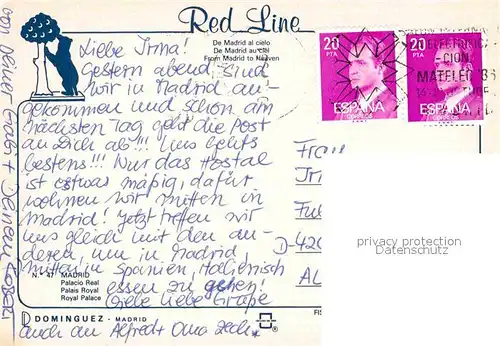 Red Line
De Madrid al cielo
De Madrid au ciel
From Madrid to Heaven
20
PTA
ESPAÑA
CORREOS
20
PTA
ESPAÑA
CORREOS
ELECTRONIC
CION
MATELEC '86
Liebe Irma!
Gestern abend sind
wir in Madrid an-
gekommen und schon am
nächsten Tag geht die Post
an Dich ab!!! Uns gehts
bestens!!! Nur das Hostal
ist etwas mäßig, dafür
wohnen wir mitten in
Madrid! Jetzt treffen wir
uns gleich mit den an-
deren, um in Madrid,
mitten in Spanien, italienisch
essen zu gehen!
Viele liebe Grüße
auch an Alfred + Oma
von Deiner Gabi + Deinem
Frau
D-420
privacy protection
Datenschutz
N.º 47 MADRID
Palacio Real
Palais Royal
Royal Palace
DOMINGUEZ - MADRID
FIS